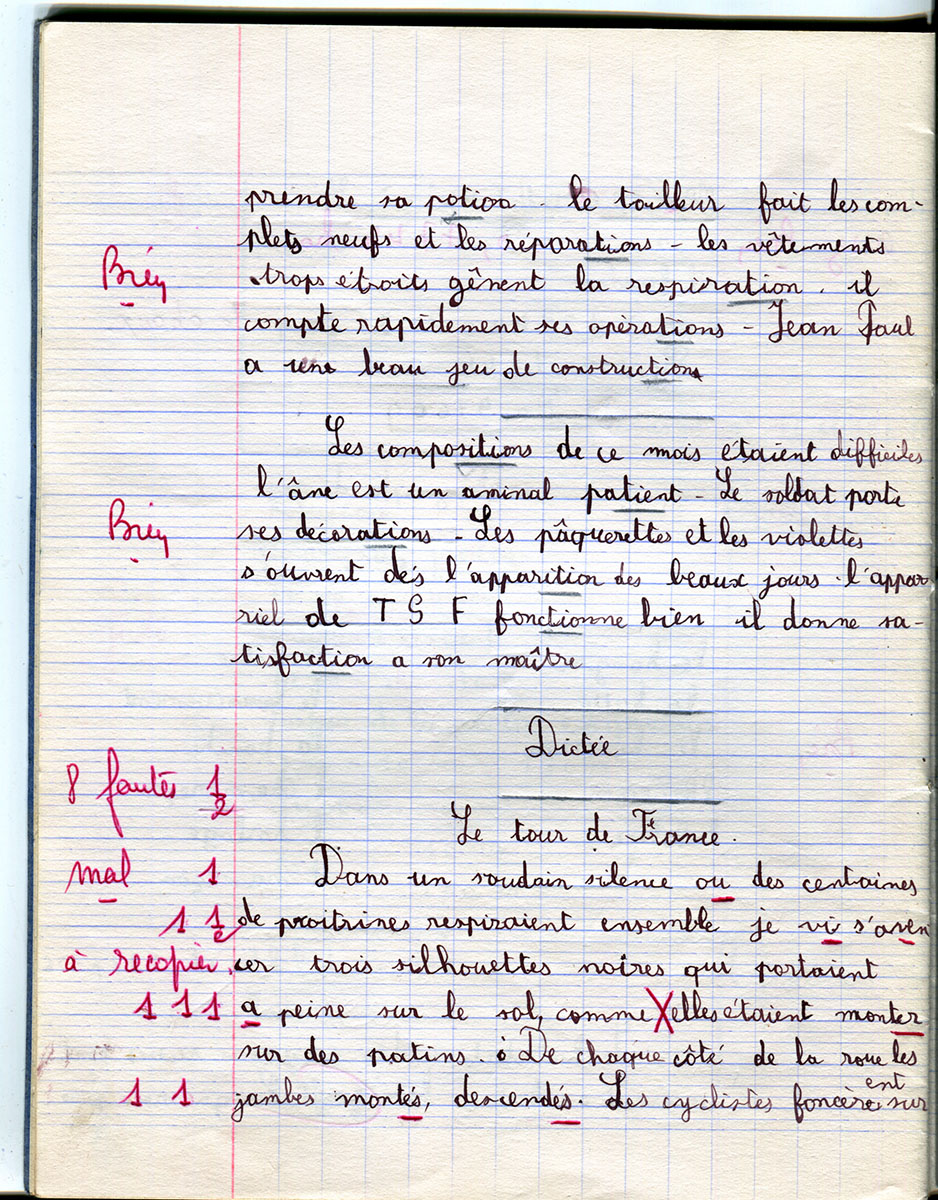 prendre sa potion. le tailleur fait les com-
plets neufs et les réparations - les vêtements
Bien
trops étroits gênent la respiration. il
compte rapidement ses opérations - Jean Paul
a une beau jeu de construction
Les compositions de ce mois étaient difficiles
l'âne est un aminal patient - Le soldat porte
Bien
ses décorations - Les pâquerettes et les violettes
s'ouvrent dés l'apparition des beaux jours. l'appar
riel de T S F fonctionne bien il donne sa-
tisfaction a son maître
Dictée
8 fautes 1/2
Le tour de France.
mal 1 Dans un soudain silence ou des centaines
1 1/2 de proitrines respiraient ensemble je vi s'aven
à recopier cer trois silhouettes noires qui portaient
1 1 1 a peine sur le sol, comme X elles étaient monter
sur des patins. De chaque côté de la roue les
1 1 jambes montés, descendés. Les cyclistes foncèrent sur